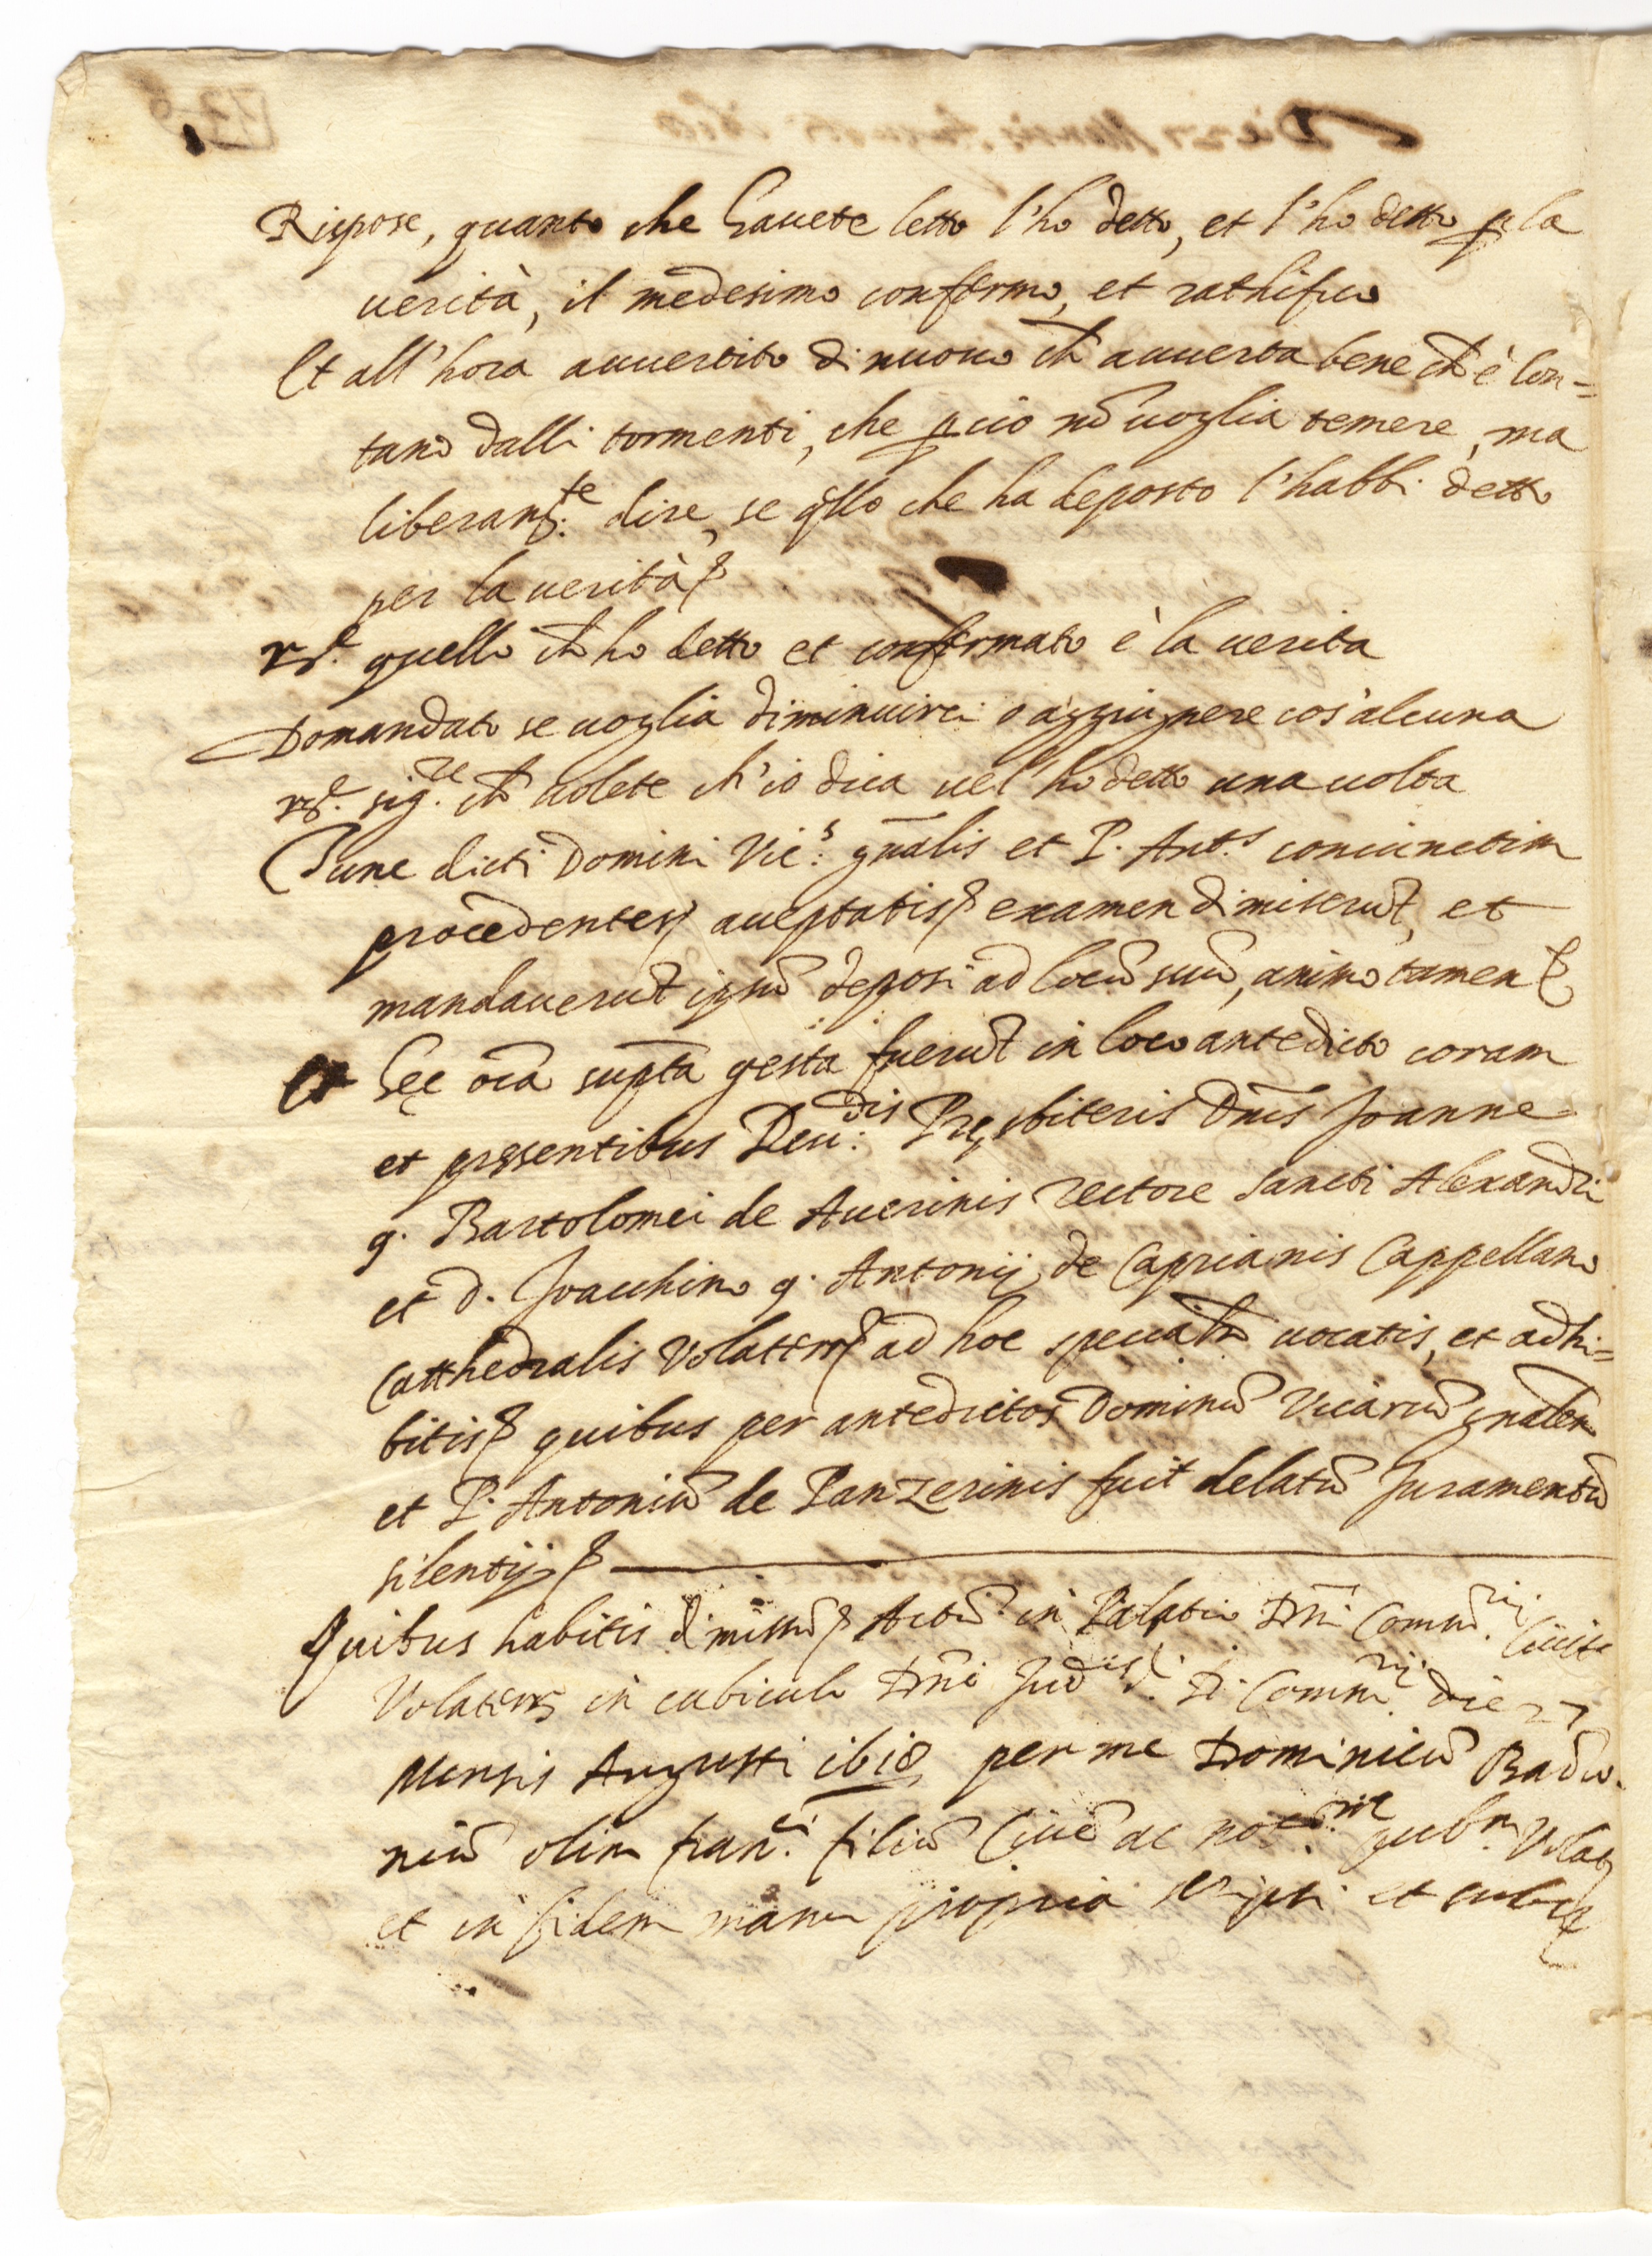 Rispose, quanto che hauete letto l'ho detto, et l'ho detto p la
uerità, il medesimo confermo, et rathifico
Et all'hora auuertito di nuouo ch' auuerta bene ch' è lon=
tano dalli tormenti, che p ciò nō uoglia temere, ma
liberam.te dire, se qllo che ha deposto l'habbi detto
per la uerità
Rs. quello ch ho detto et confermato è la uerita
Domandato se uoglia diminuire o aggiugnere cos'alcuna
Rs. sig.re ch uolete ch'io dica uel'ho detto una uolta
Tunc dicti Domini Vic.s gnālis et P. Ant.s coniunctim
procedentes acceptatis examen dimiserūt, et
mandauerūt ipsū deponi ad locū suū, animo tamen
et hec oīa supta gesta fuerūt in loco antedicto coram
et presentibus Reu.dis Presbiteris Dnis Joanne
q. Bartolomei de Auerinis rectore Sancti Alexandri
et D. Joacchino q. Antonij de Caprianis Cappellano
Catthedralis Volaterr ad hoc specialr uocatis, et adhi=
bitis quibus per antedictos Dominū Vicariū gnalem
et P. Antoniū de Panzerinis fuit delatū Juramentū
silentij
Quibus habitis dimissū Actū in Palatio Dni Comm.rij Ciuit
Volaterr in cubiculo Dni Jud.is D. Comm.rij die 27
Mensis Augusti 1618 per me Dominicū
niū olim Fran.ci filiū Ciuē ac not.m pub.m Volat
et in fidem manu propria scripsi et subs